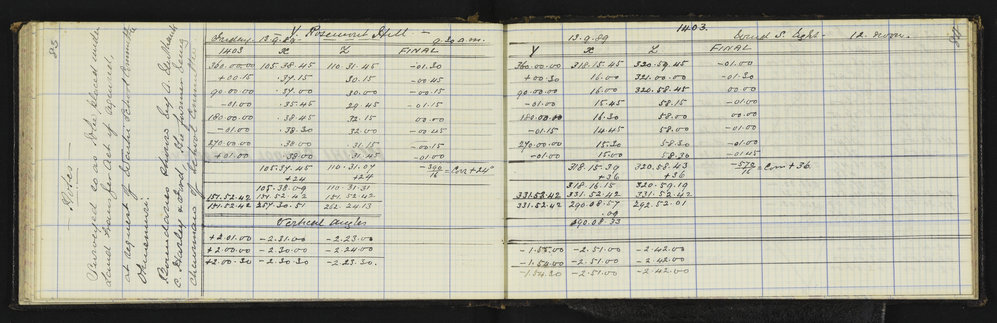 85
Notes —
Surveyed so as to be placed under
Land Transfer Act if required,
at request of School Committee
Boundaries shown by A.
C. Hursley & Ford, the former being
Chairman of School Committee
V. Rosemount Hill —
Friday 13.9.89 9.30 a.m.
1403 X Z FINAL
360.00.00 105.38.45 110.31.45 -01.30
+00.15 .37.15 30.15 -00.45
90.00.00 .37.00 30.00 -00.15
-01.00 .35.45 29.45 -01.15
180.00.00 .38.45 32.15 00.00
-01.00 .38.30 32.00 -00.45
270.00.00 .38.00 31.15 -00.15
+01.00 .38.00 31.45 -01.00
105.37.45 110.31.07 -390/16 = Corrn +24"
+24 +24
105.38.09 110.31.31
151.52.42 151.52.42 151.52.42
151.52.42 257.30.51 262.24.13
Vertical Angles
+2.01.00 -2.31.00 -2.23.00
+2.00.00 -2.30.00 -2.24.00
+2.00.30 -2.30.30 -2.23.30.
1403.
13.9.89 Good S. Light. 12 noon.
Y X Z FINAL
360.00.00 318.15.45 320.59.45 -01.00
+00.30 16.00 321.00.00 -01.30
90.00.00 16.00 320.58.45 00.00
-01.00 15.45 58.15 -01.00
180.00.00 16.30 58.00 00.00
-01.15 14.45 58.00 -01.00
270.00.00 15.30 58.30 -00.15
-01.00 15.00 58.30 -01.45
318.15.39 320.58.43 -570/16 = Corrn +36.
+36 +36
318.16.15 320.59.19
331.52.42 331.52.42 331.52.42
331.52.42 290.08.57 292.52.01
290.08.33
-1.55.00 -2.51.00 -2.42.00
-1.54.00 -2.51.00 -2.42.00
-1.54.30 -2.51.00 -2.42.00